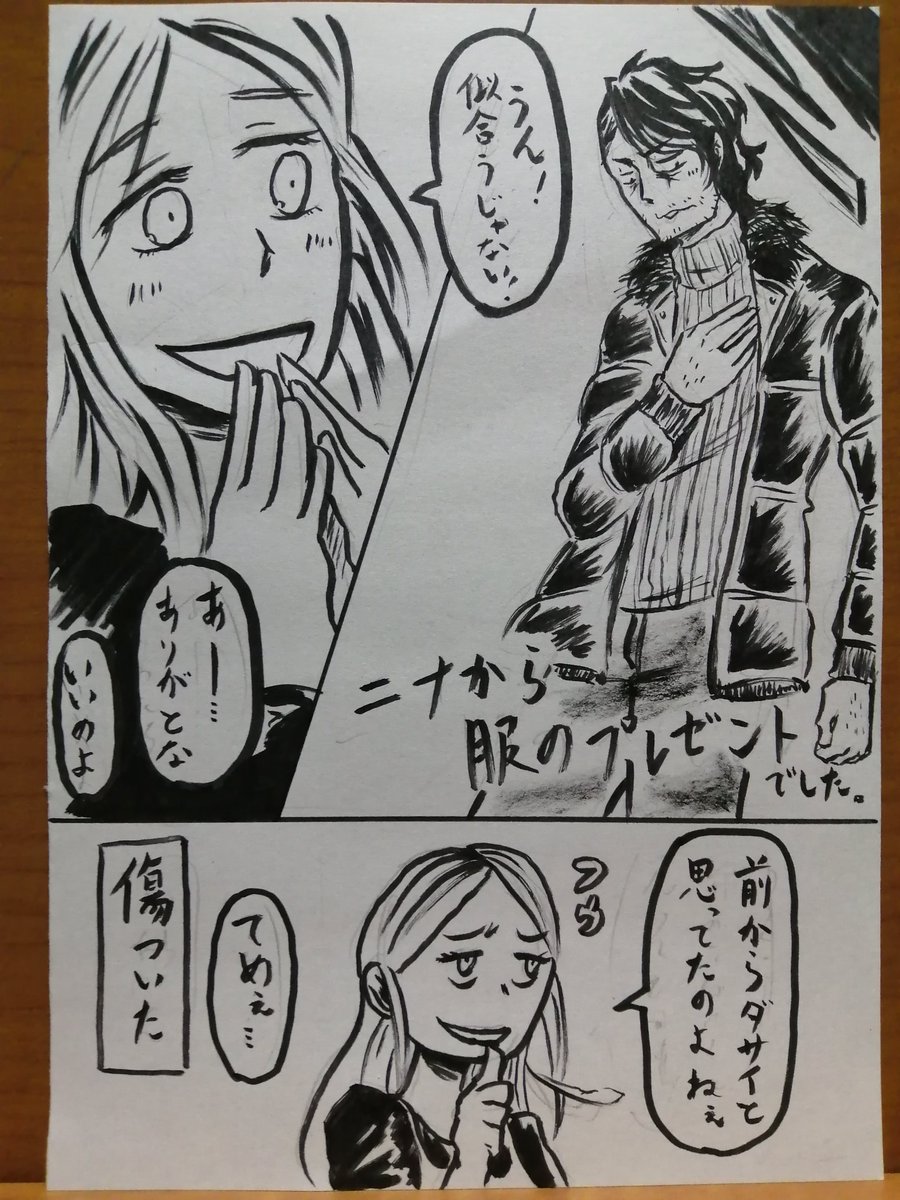 うん！
似合うじゃない！
ニナから
服のプレゼント
でした。
あー…
ありがとな
いいのよ
前からダサイと
思ってたのよねぇ
てめぇ…
傷ついた